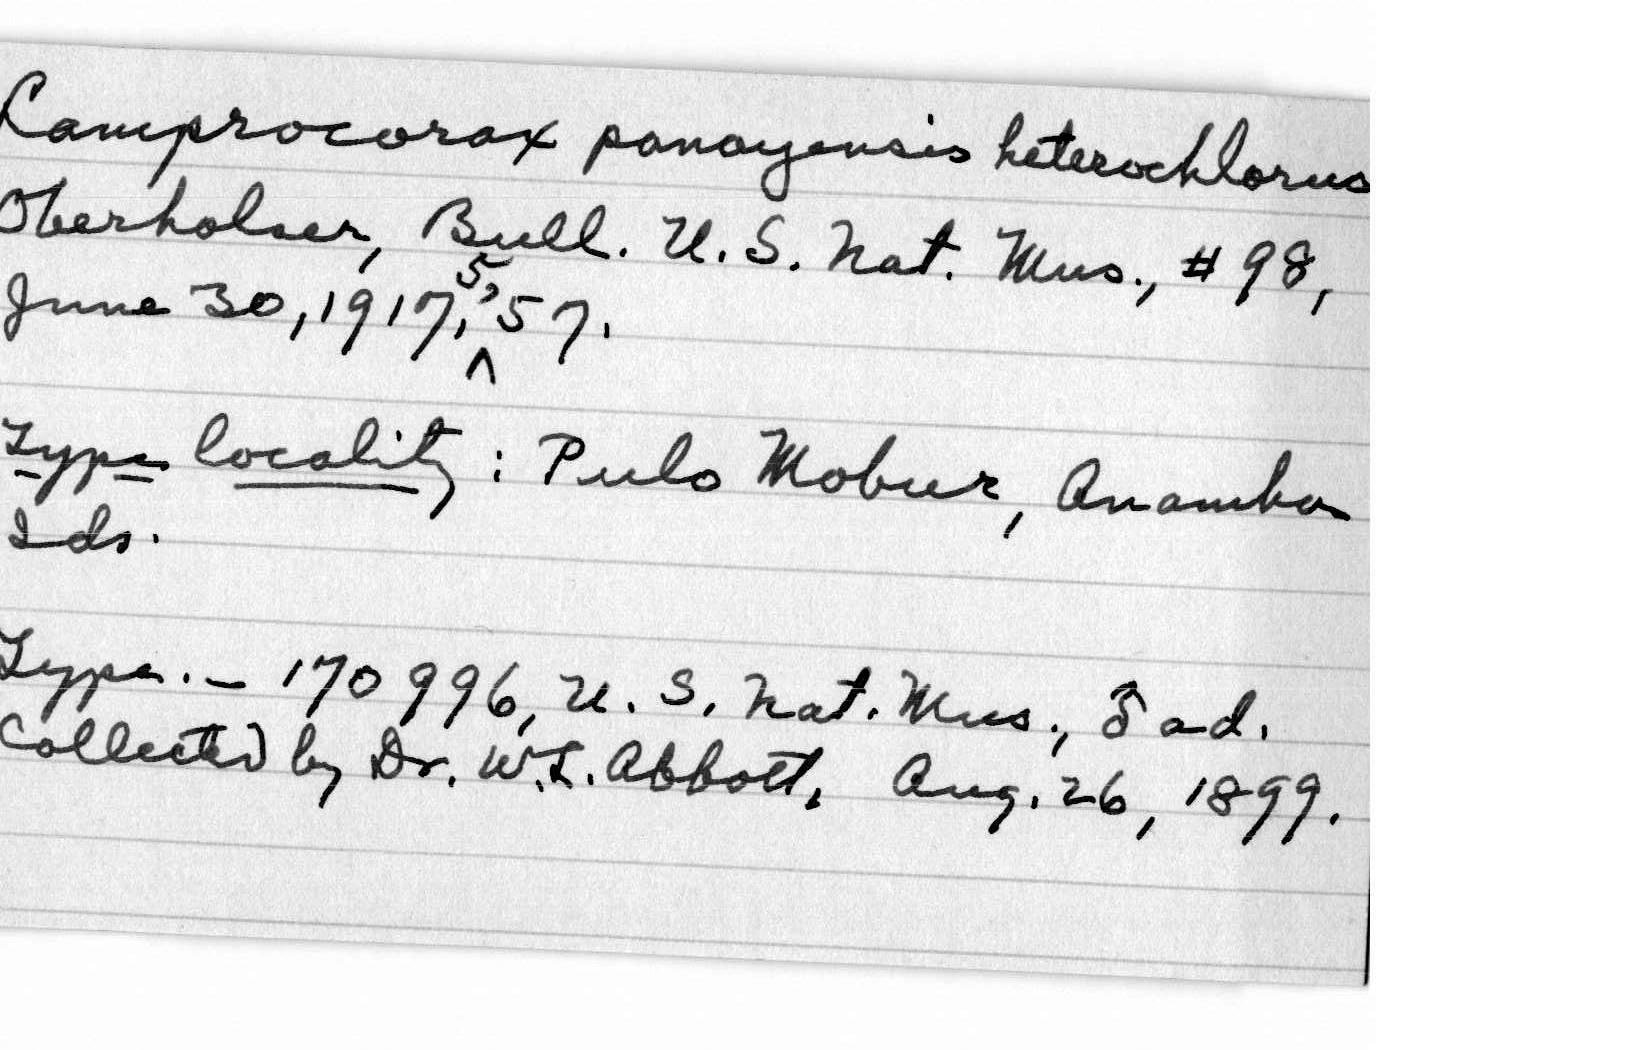 Lamprocorax panayensis heterochlorus
Oberholser, Bull. U. S. Nat. Mus., # 98,
June 30, 1917, 5, 57.
Type locality : Pulo Mobur, Anamba
Ids.
Type. – 170996, U. S. Nat. Mus., ♂ ad.
Collected by Dr. W. L. Abbott, Aug. 26, 1899.